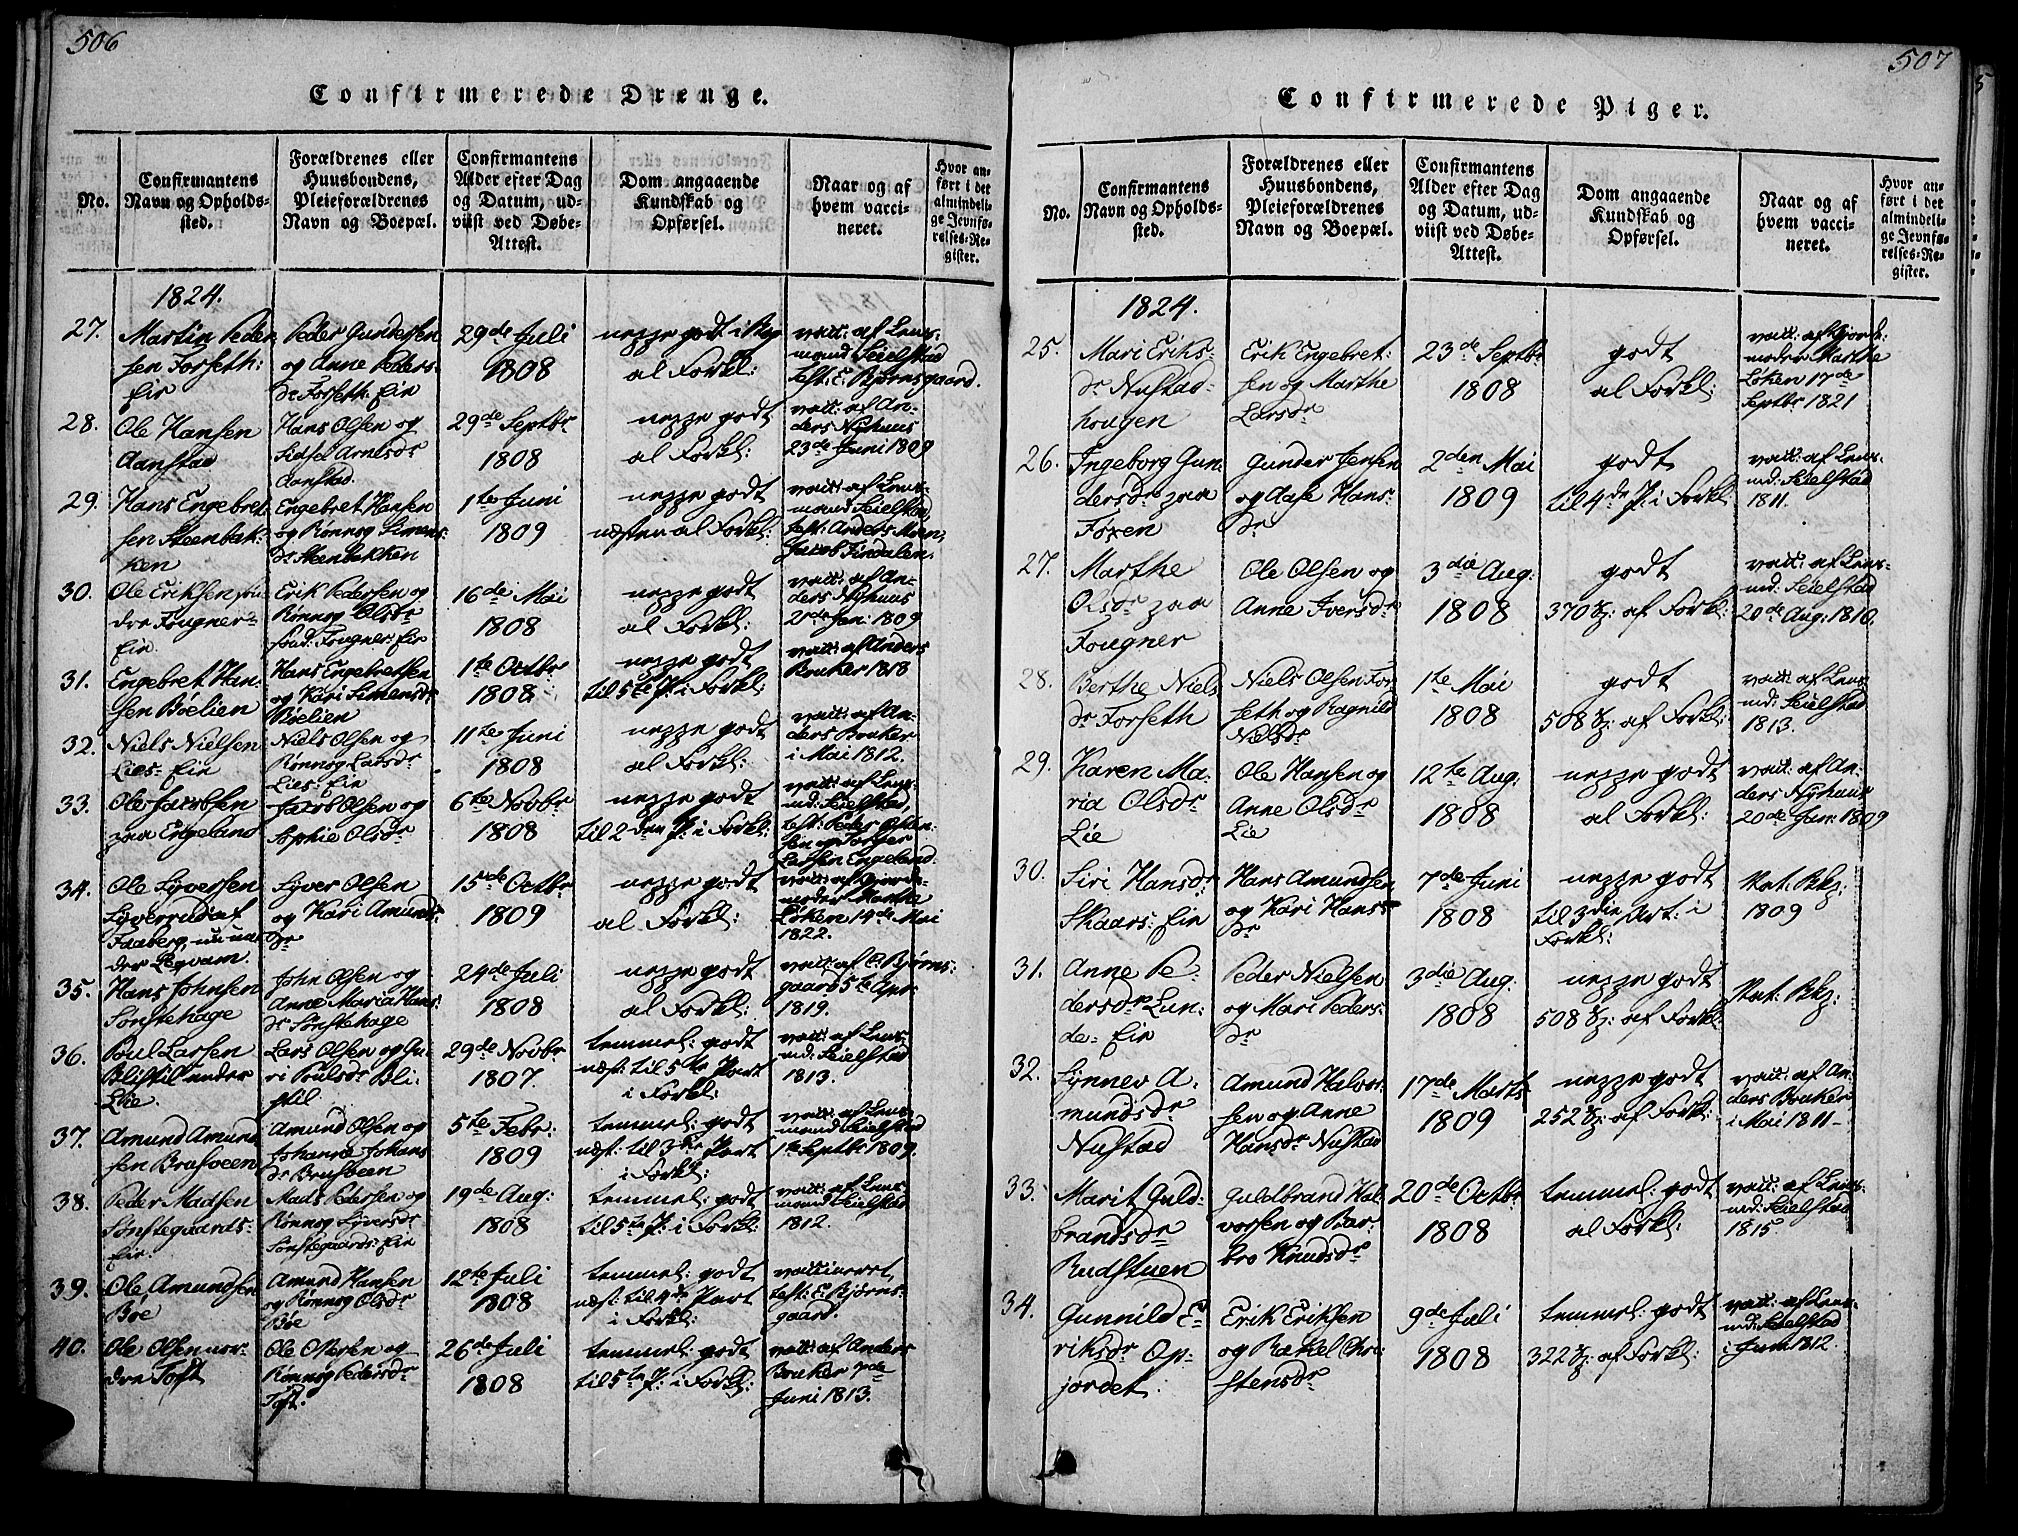 506
Confirmerede Drenge.
No.
Confirmantens
Navn og Opholds-
sted.
Forældrenes eller
Huusbondens,
Pleieforældrenes
Navn og Boepæl.
Confirmantens
Alder efter Dag
og Datum, ud-
viist ved Døbe-
Attest.
Dom angaaende
Kundskab og
Opførsel.
Naar og af
hvem vacci-
neret.
Hvor an-
ført i det
almindeli-
ge Jevnfø-
relses-Re-
gister.
1824.
27.
Martin Peder
sen Forseth:
Eie
Peder Gundersen
og Anne Peders:
dr Forseth: Eie
29de Juli
1808
al Forkl:
vacc: af Lens-
mand Seielstad
test: E Bjørnsgaard.
28.
Ole Hansen
Aanstad
Hans Olsen og
Sidsel Arnesdr
Aanstad.
29de Septbr
1808
al Forkl:
vacc: af An-
ders Nyhuus
23de Juni 1809
29.
Hans Engebret
sen Steenbak-
ken
Engebret Hansen
og Rønnog Simens
dr Steenbakken
1te Juni
1809
næsten al Forkl:
vacc: af Lens-
mand Seielstad
30.
Ole Eriksen søn
dre Fougner-
Eie.
Erik Pedersen og
Rønnog Olsdr
sønd: Fougner: Eie
16de Mai
1808
al Forkl:
vacc: af An-
ders Nyhuus
2de Jan: 1809
31.
Engebret Han-
sen Bøelien
Hans Engebretsen
og Kari Simensdr
Bøelien
1te Octbr
1808
til 5te P: i Forkl:
vacc: af Anders
Bruker 1818
32.
Niels Nielsen
Lies-Eie
Niels Olsen og
Rønnog Larsdr
Lies: Eie
11te Juni
1808
al Forkl:
vacc: af An-
ders Bruker
i Mai 1812.
33.
Ole Jacobsen
paa Engeland
Jacob Olsen og
Sophie Olsdr
6te Novbr
1808
til 2den P: i Forkl:
vacc: af Lens-
md: Seielstad,
34.
Ole Syversen
Syverrud af
Faaberg, nu un-
der Legvam.
Syver Olsen
og Kari Amunds
dr
15de Octbr
1809
al Forkl:
vacc: af Gjorde-
moder Marthe
Løken 19de Mai
1822.
35.
Hans Johnsen
Sønstehage
John Olsen og
Anne Maria Hans:
dr Sønstehage
24de Juli
1808
al Forkl:
vacc: af E. Bjørns-
gaard 5te Apr:
1819.
36.
Poul Larsen
Blistil under
Lie.
Lars Olsen og Gu-
ri Poulsdr Bli-
stil
29de Novbr
1807.
temmel: godt
næst: til 5te Part
i Forkl:
vacc: af Lens-
md: Seielstad
1813.
37.
Amund Amund
sen Brusveen
Amund Olsen og
Johanne Johans
dr Brusveen
5te Febr:
1809
temmel: godt
næst: til 3die Part
i Forkl:
vacc: af Lens-
mand Seielstad
1te Septbr 1809.
38.
Peder Madsen
Sønstegaards-
Eie.
Mads Pedersen og
Rønnog Syversdr
Sønstegaards: Eie
19de Aug:
1808
temmel: godt
til 5te P: i Forkl:
vacc: af Lens-
mand Seielstad
1812.
39.
Ole Amundsen
Bøe
Amund Hansen
og Rønnog Olsdr
Bøe
12te Juli
1808
temmel: godt
næst: til 4de Part
i Forkl:
vaccineret,
test: E Bjørns-
gaard.
40.
Ole Olsen nor-
dre Toft
Ole Olesen og
Rønnog Pedersdr
Toft.
26de Juli
1808
temmel: godt
til 5te P: i Forkl:
vacc: af Anders
Bruker 7de
Juni 1813.
507
Confirmerede Piger.
No.
Confirmantens
Navn og Opholds-
sted.
Forældrenes eller
Huusbondens,
Pleieforældrenes
Navn og Boepæl.
Confirmantens
Alder efter Dag
og Datum, ud-
viist ved Døbe-
Attest.
Dom angaaende
Kundskab og
Opførsel.
Naar og af
hvem vacci-
neret.
Hvor an-
ført i det
almindeli-
ge Jevnfø-
relses-Re-
gister.
1824.
25.
Mari Eriks-
dr Nustad-
hougen
Erik Engebret:
sen og Marthe
Larsdr
23de Septbr
1808
godt
al Forkl:
vacc: af Gjorde-
moder Marthe
Løken 17de
Septbr 1821
26.
Ingeborg Gun-
dersdr paa
Foxen
Gunder Jensen
og Aase Hans-
dr
2den Mai
1809
godt
til 4de P: i Forkl:
vacc: af Lens-
md: Seielstad
1811.
27.
Marthe
Olsdr paa
Fougner
Ole Olsen og
Anne Iversdr
3die Aug:
1808
godt
370 Sp: af Forkl:
vacc: af Lens-
md: Seielstad
20de Aug: 1810.
28.
Berthe Niels
dr Forseth
Niels Olsen For
seth og Ragnild
Nielsdr
1te Mai
1808
godt
508 Sp: af Forkl:
vacc: af Lens-
md: Seielstad
1813.
29.
Karen Ma-
ria Olsdr
Lie
Ole Hansen og
Anne Olsdr
Lie
12te Aug:
1808
al Forkl:
vacc: af An-
ders Nyhuus
20de Jan: 1809
30.
Siri Hansdr
Skaars: Eie
Hans Amundsen
og Kari Hans-
dr
7de Juni
1808
til 3die Art: i
Forkl:
Nat: Bkp:
1809
31.
Anne Pe-
dersdr Lun-
de-Eie
Peder Nielsen
og Mari Peders:
dr
3die Aug:
1808
508 Sp: af Forkl
Nat: Bkp:
32.
Synnev A-
mundsdr
Nustad
Amund Halvor
sen og Anne
Hansdr Nustad
17de Marts
1809
252 Sp: af Forkl:
vacc: af An-
ders Bruker
i Mai 1811-
33.
Marit Guld-
brandsdr
Rudstuen
Guldbrand Hal-
vorsen og Bar-
bro Knudsdr
20de Octbr
1808
temmel: godt
al Forkl:
vacc: af Lens-
md: Seielstad
1815
34.
Gunnild E-
riksdr Op-
jordet
Erik Eriksen
og Rakel Chri-
stensdr
9de Juli
1808
temmel: godt
322 Sp: af Forkl:
vacc: af Lens-
md: Seielstad
i Juni 1812.